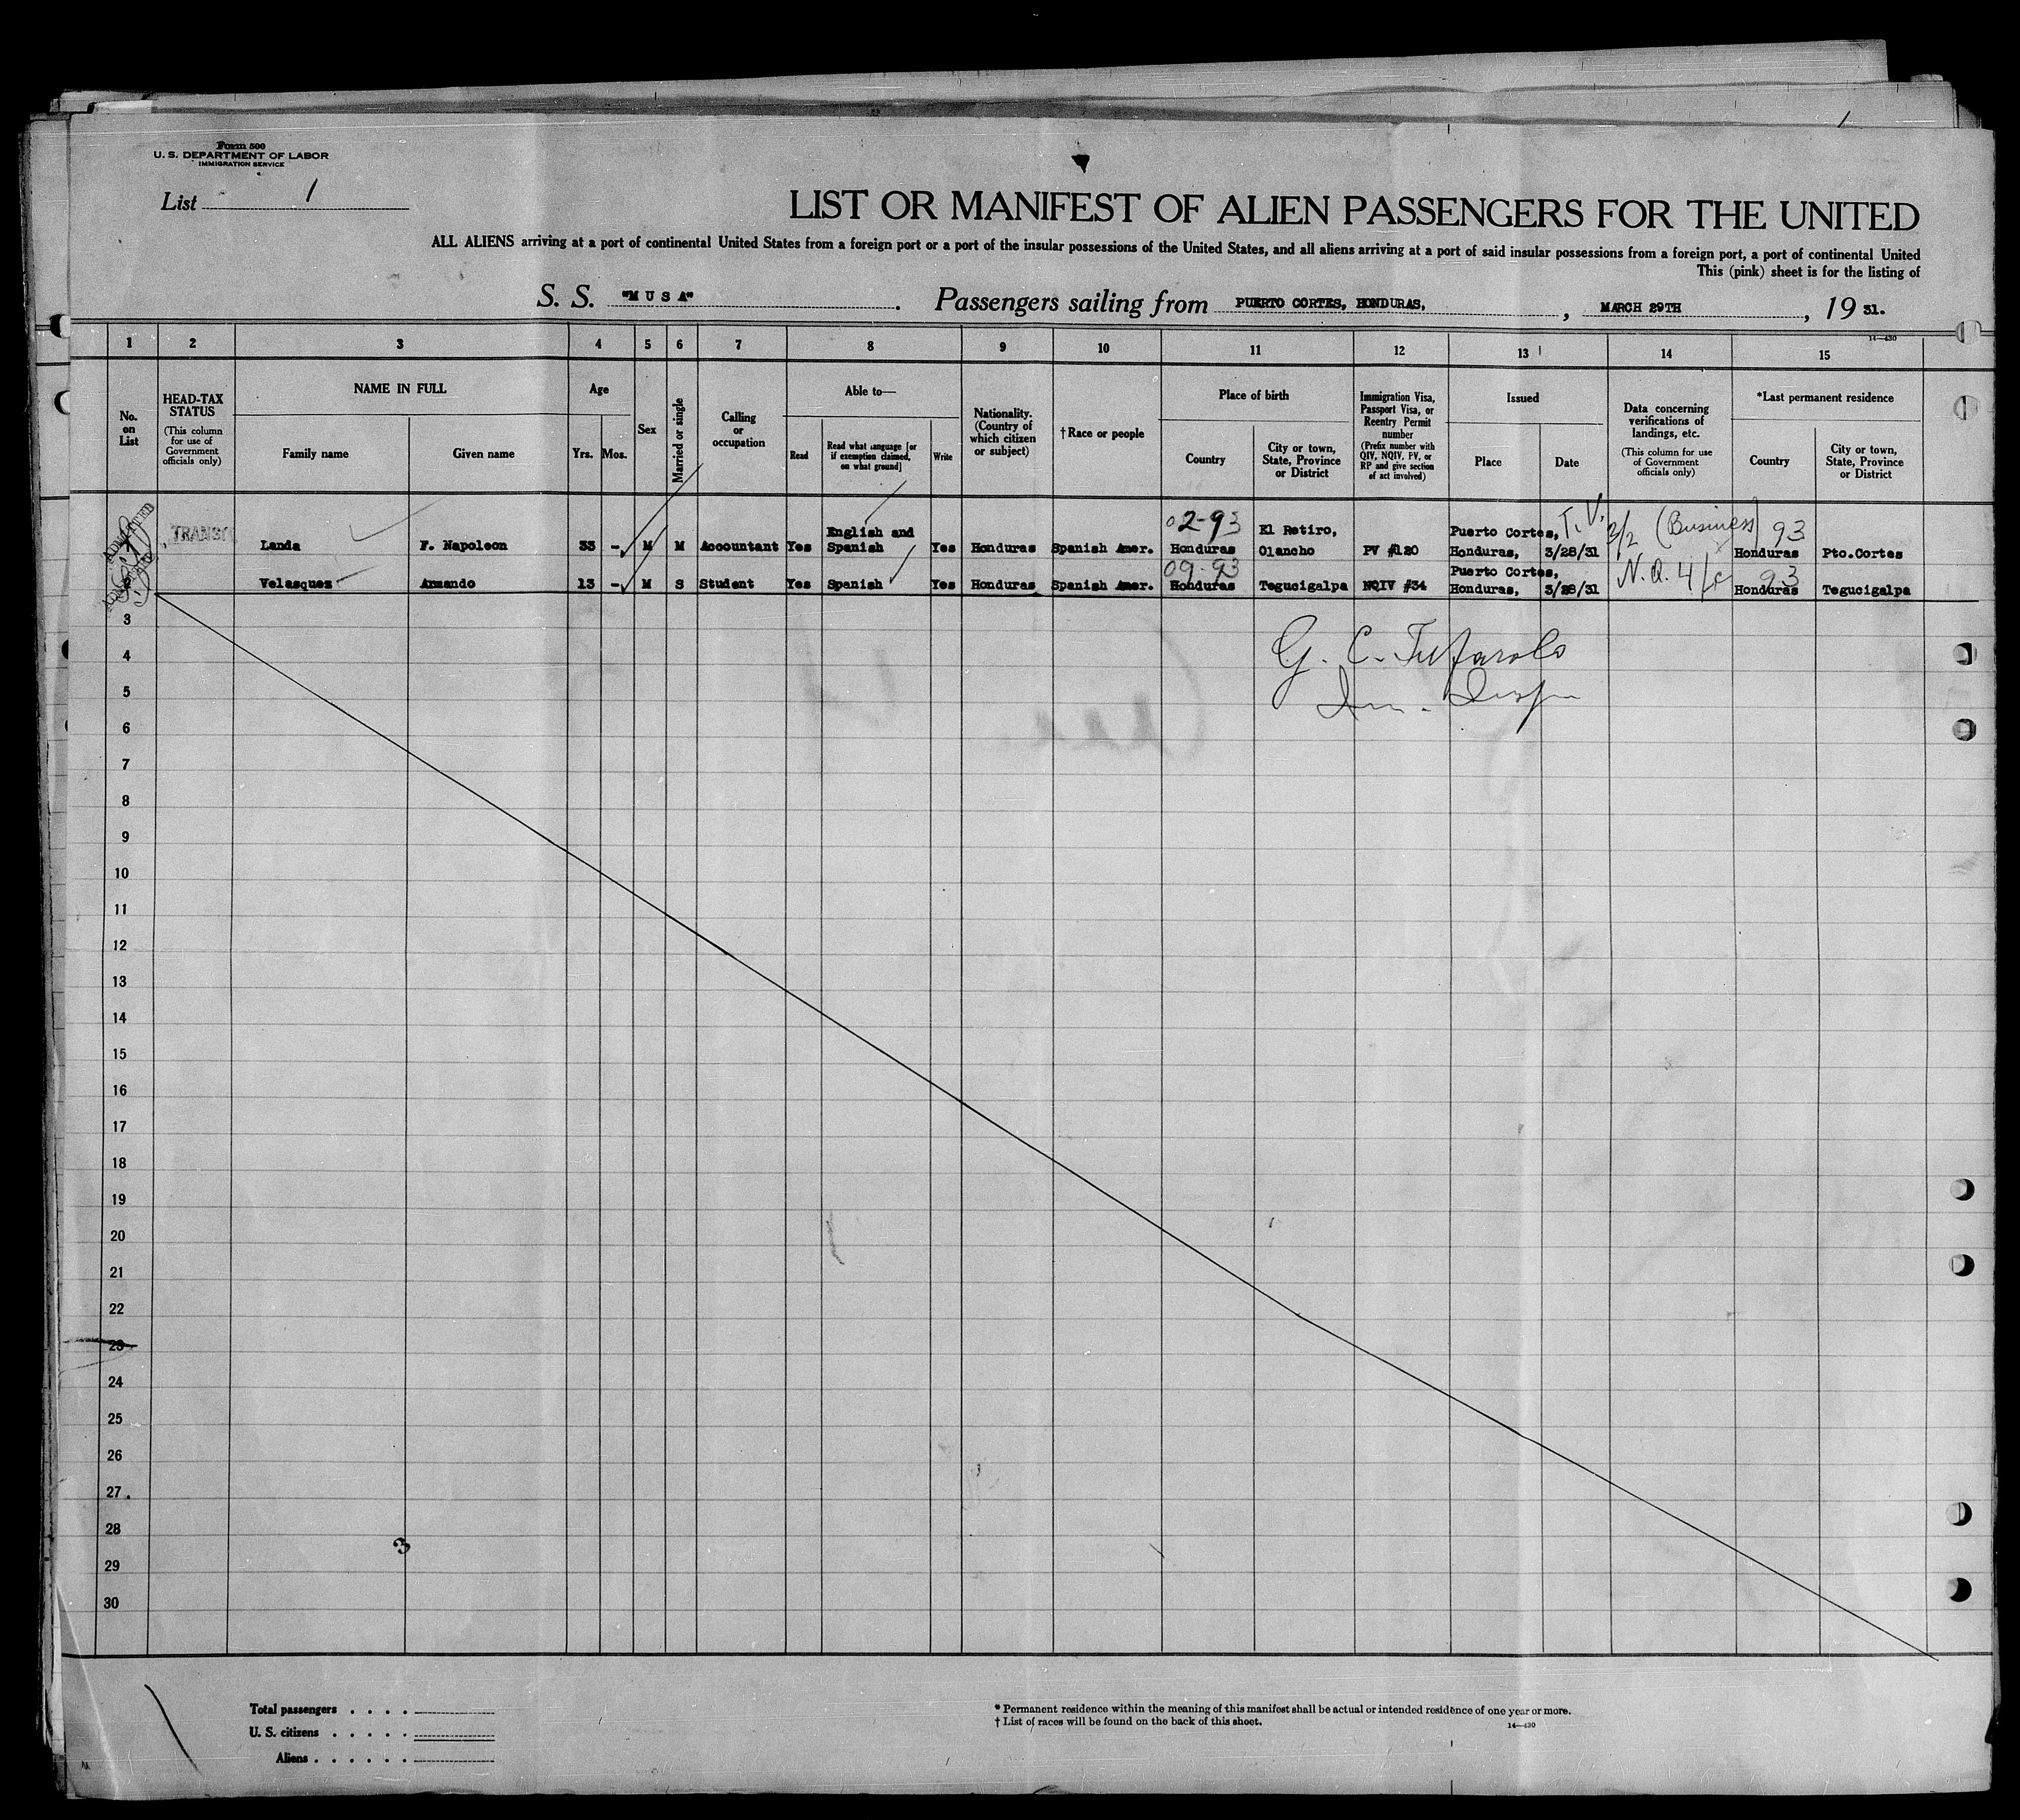 Form 500
U. S. DEPARTMENT OF LABOR
IMMIGRATION SERVICE
List 1
LIST OR MANIFEST OF ALIEN PASSENGERS FOR THE UNITED
ALL ALIENS arriving at a port of continental United States from a foreign port or a port of the insular possessions of the United States, and all aliens arriving at a port of said insular possessions from a foreign port, a port of continental United
This (pink) sheet is for the listing of
S. S. "M U S A". Passengers sailing from PUERTO CORTES, HONDURAS, , MARCH 29TH , 19 31.
1 2 3 4 5 6 7 8 9 10 11 12 13 14 15
14—430
No. on List
HEAD-TAX STATUS
(This column for use of Government officials only)
NAME IN FULL
Family name
Given name
Age
Yrs. Mos.
Sex
Married or single
Calling or occupation
Able to—
Read
Read what language [or if exemption claimed, on what ground]
Write
Nationality. (Country of which citizen or subject)
†Race or people
Place of birth
Country
City or town, State, Province or District
Immigration Visa, Passport Visa, or Reentry Permit number
(Prefix number with QIV, NQIV, PV, or RP and give section of act involved)
Issued
Place
Date
Data concerning verifications of landings, etc.
(This column for use of Government officials only)
*Last permanent residence
Country
City or town, State, Province or District
ADMITTED
02-93 T.V. 3/2 (Business) 93
English and El Retiro, Puerto Cortes,
Landa F. Napoleon 33 - M M Accountant Yes Spanish Yes Honduras Spanish Amer. Honduras Olancho PV #120 Honduras, 3/28/31 Honduras Pto.Cortes
09-93 Puerto Cortes, N.Q. 4/c 93
Velasquez Armando 13 - M S Student Yes Spanish Yes Honduras Spanish Amer. Honduras Tegucigalpa NQIV #34 Honduras, 3/28/31 Honduras Tegucigalpa
3
4
5
6
7
8
9
10
11
12
13
14
15
16
17
18
19
20
21
22
23
24
25
26
27
28
29
30
3
Total passengers . . . .
U. S. citizens . . . . .
Aliens . . . . . .
* Permanent residence within the meaning of this manifest shall be actual or intended residence of one year or more.
† List of races will be found on the back of this sheet.
14—430